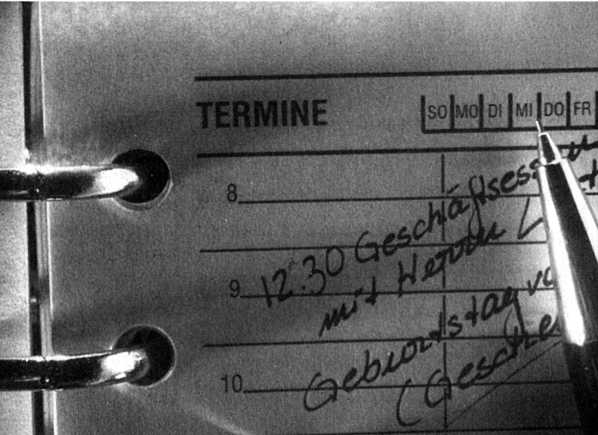 TERMINE
SO MO DI MI DO FR
8
12.30 Geschäftsessen
9
mit Herrn
Geburtstag
10